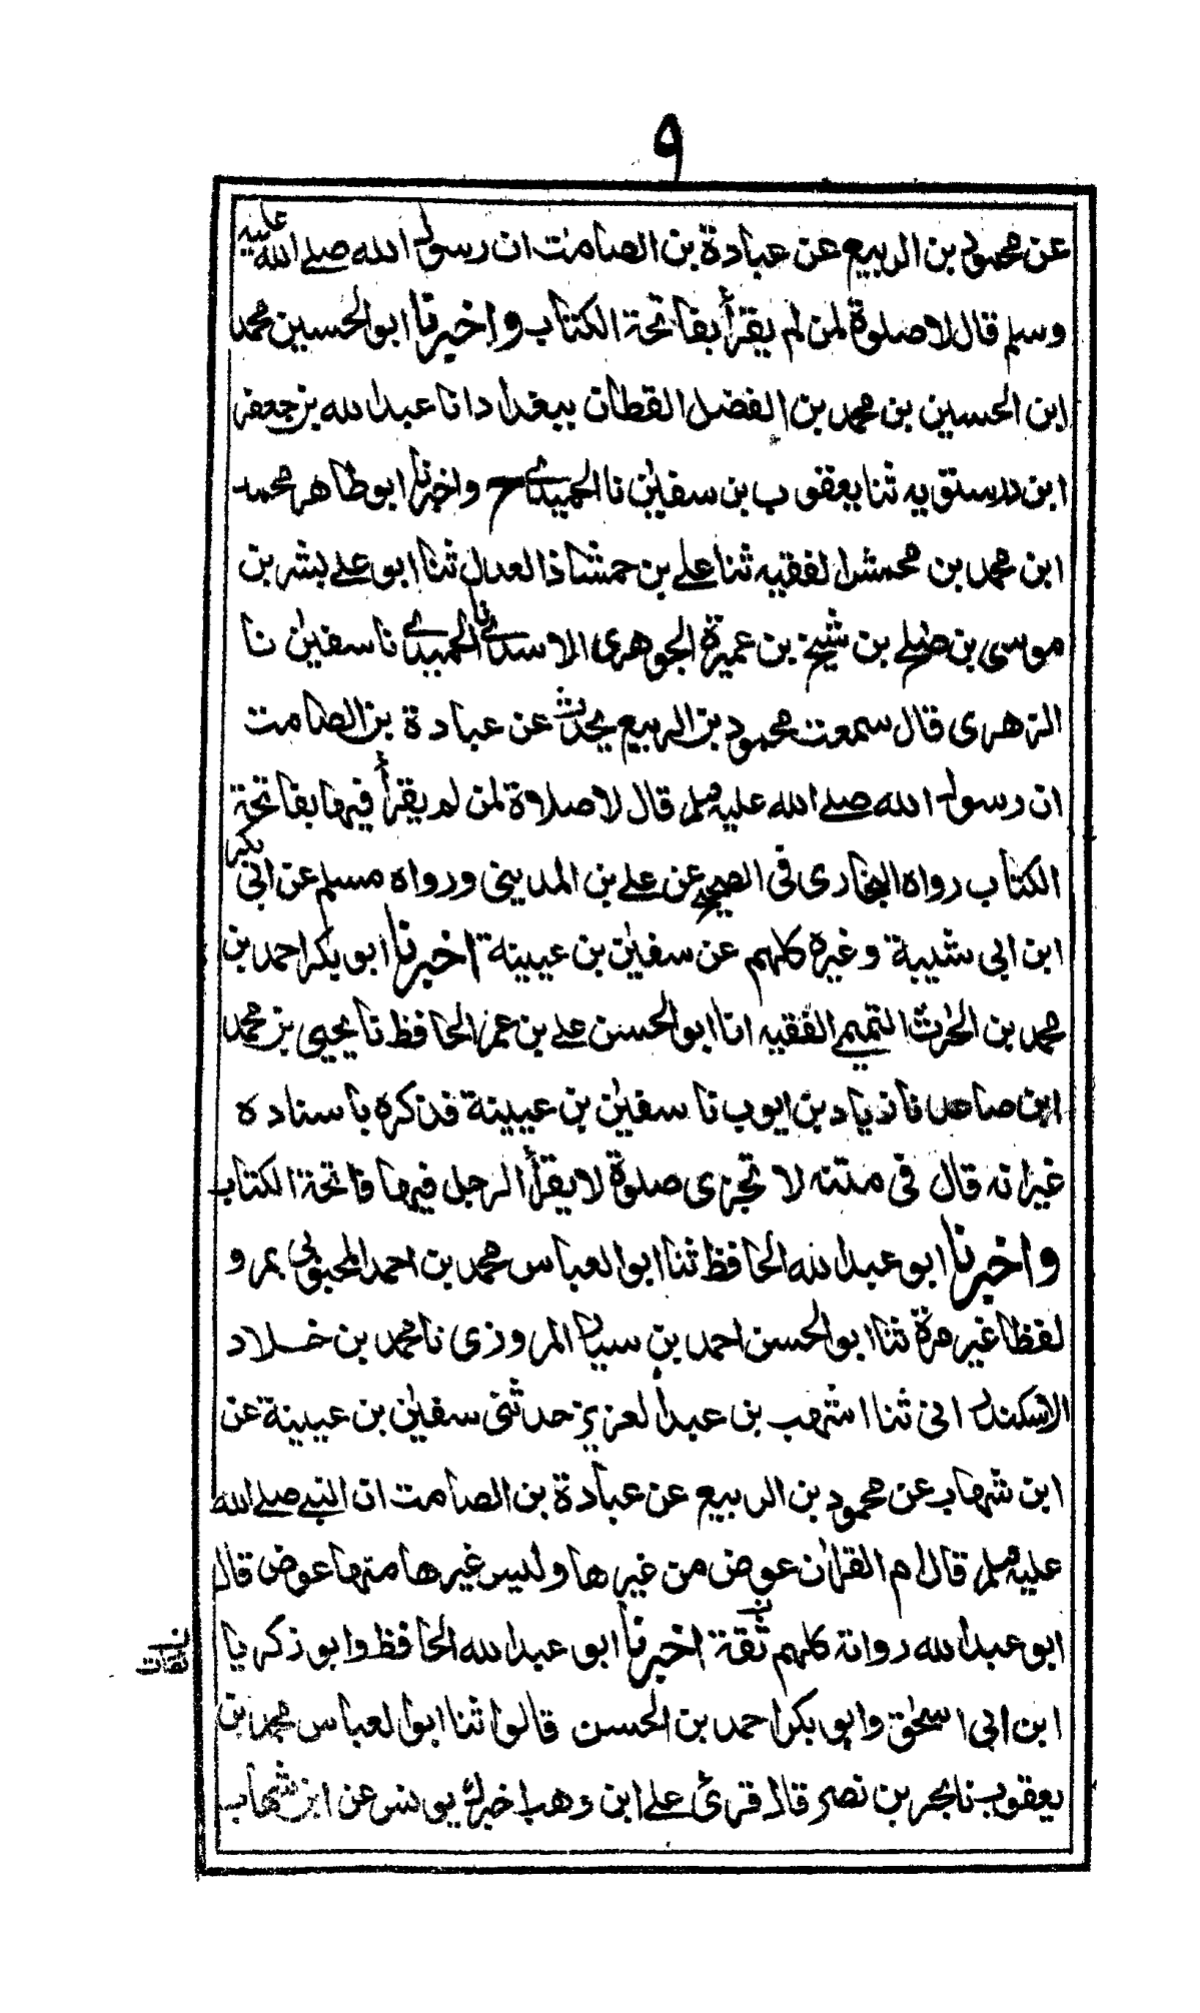 ٩
عن محمود بن الربيع عن عبادة بن الصامت ان رسول الله صلے الله عليه
وسلم قال لا صلوة لمن لم يقرأ بفاتحة الكتاب واخبرنا ابو الحسين محمد
ابن الحسين بن محمد بن الفضل القطان ببغداد انا عبد الله بن جعفر
ابن درستويه ثنا يعقوب بن سفيٰن نا الحميدے ح واخبرنا ابو طاهر محمد
ابن محمد بن محمش الفقيه ثنا علے بن حمشاذ العدل ثنا ابو علے بشر بن
موسى بن صٰلح بن شيخ بن عميرة الجوهرى الاسدے نا الحميدے نا سفيٰن نا
الزهرى قال سمعت محمود بن الربيع يحدث عن عبادة بن الصامت
ان رسول الله صلے الله عليه وسلم قال لا صلاة لمن لم يقرأ فيها بفاتحة
الكتاب رواه البخارى فى الصحيح عن علے بن المدينى ورواه مسلم عن ابى بكر
ابن ابى شيبة وغيره كلهم عن سفيٰن بن عيينة اخبرنا ابو بكر احمد بن
محمد بن الحٰرث التميمے الفقيه انا ابو الحسن علے بن عمر الحافظ نا يحيى بن محمد
ابن صاعد نا زياد بن ايوب نا سفيٰن بن عيينة فذكره باسناده
غير انه قال فى متنه لا تجزى صلوة لا يقرأ الرجل فيها فاتحة الكتاب
واخبرنا ابو عبد الله الحافظ ثنا ابو العباس محمد بن احمد المحبوبى بمرو
لفظا غير مرة ثنا ابو الحسن احمد بن سيار المروزى نا محمد بن خلاد
الاسكندرانى ثنا اشهب بن عبد العزيز حدثنى سفيٰن بن عيينة عن
ابن شهاب عن محمود بن الربيع عن عبادة بن الصامت ان النبے صلے الله
عليه وسلم قال ام القراٰن عوض من غيرها وليس غيرها منها عوض قال
ابو عبد الله رواته كلهم ثقة اخبرنا ابو عبد الله الحافظ وابو زكريا
ثقات
ابن ابى اسحٰق وابو بكر احمد بن الحسن قالوا ثنا ابو العباس محمد بن
يعقوب نا بحر بن نصر قال قرئ علے ابن وهب اخبرك يونس عن ابن شهاب